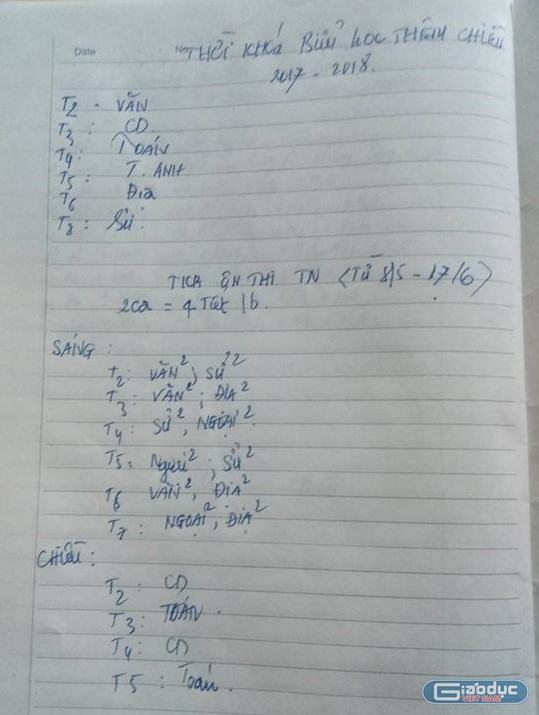 Date No
THỜI KHOÁ BIỂU HỌC THÊM CHIỀU
2017 - 2018.
T2 - VĂN
T3 : CD
T4 : TOÁN
T5 : T. ANH
T6 ĐỊA
T8 : Sử :
TKB ÔN THI TN (Từ 8/5 - 17/6)
2ca = 4 Tiết /b.
SÁNG :
T2 : VĂN² ; SỬ²
T3 : VĂN² ; ĐỊA²
T4 : SỬ², NGOẠI².
T5 : Ngoại² ; SỬ²
T6 VĂN², ĐỊA²
T7 : NGOẠI², ĐỊA²
CHIỀU :
T2 : CD
T3 : TOÁN .
T4 : CD
T5 : Toán .
Giáo dục
VIỆT NAM